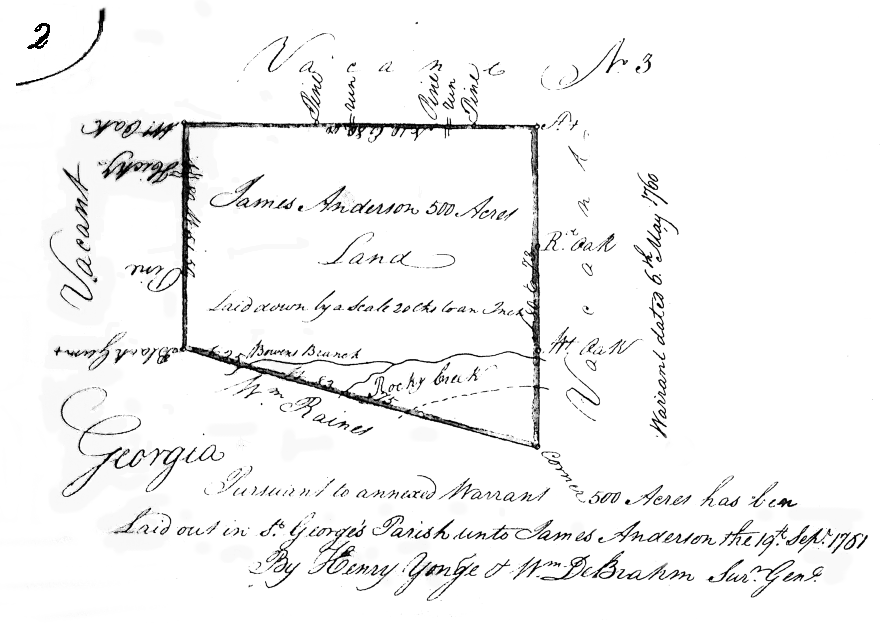 2
Vacant
No 3
Pine
run
Pine
run
Pine
Wt. Oak
Hickry
Vacant
Pine
Black Gum +
James Anderson 500 Acres
Land
Laid down by a Scale 20 Chs to an Inch
Rd. Oak
Wt. Oak
Vacant
Warrant dated 6th May 1760
Bowens Branch
Rocky Creek
Wm Raines
Corner
Georgia
Pursuant to annexed Warrant 500 Acres has been
Laid out in St. George's Parish unto James Anderson the 19th. Sepr. 1761
By Henry Yonge & Wm DeBrahm Surn. Genl.